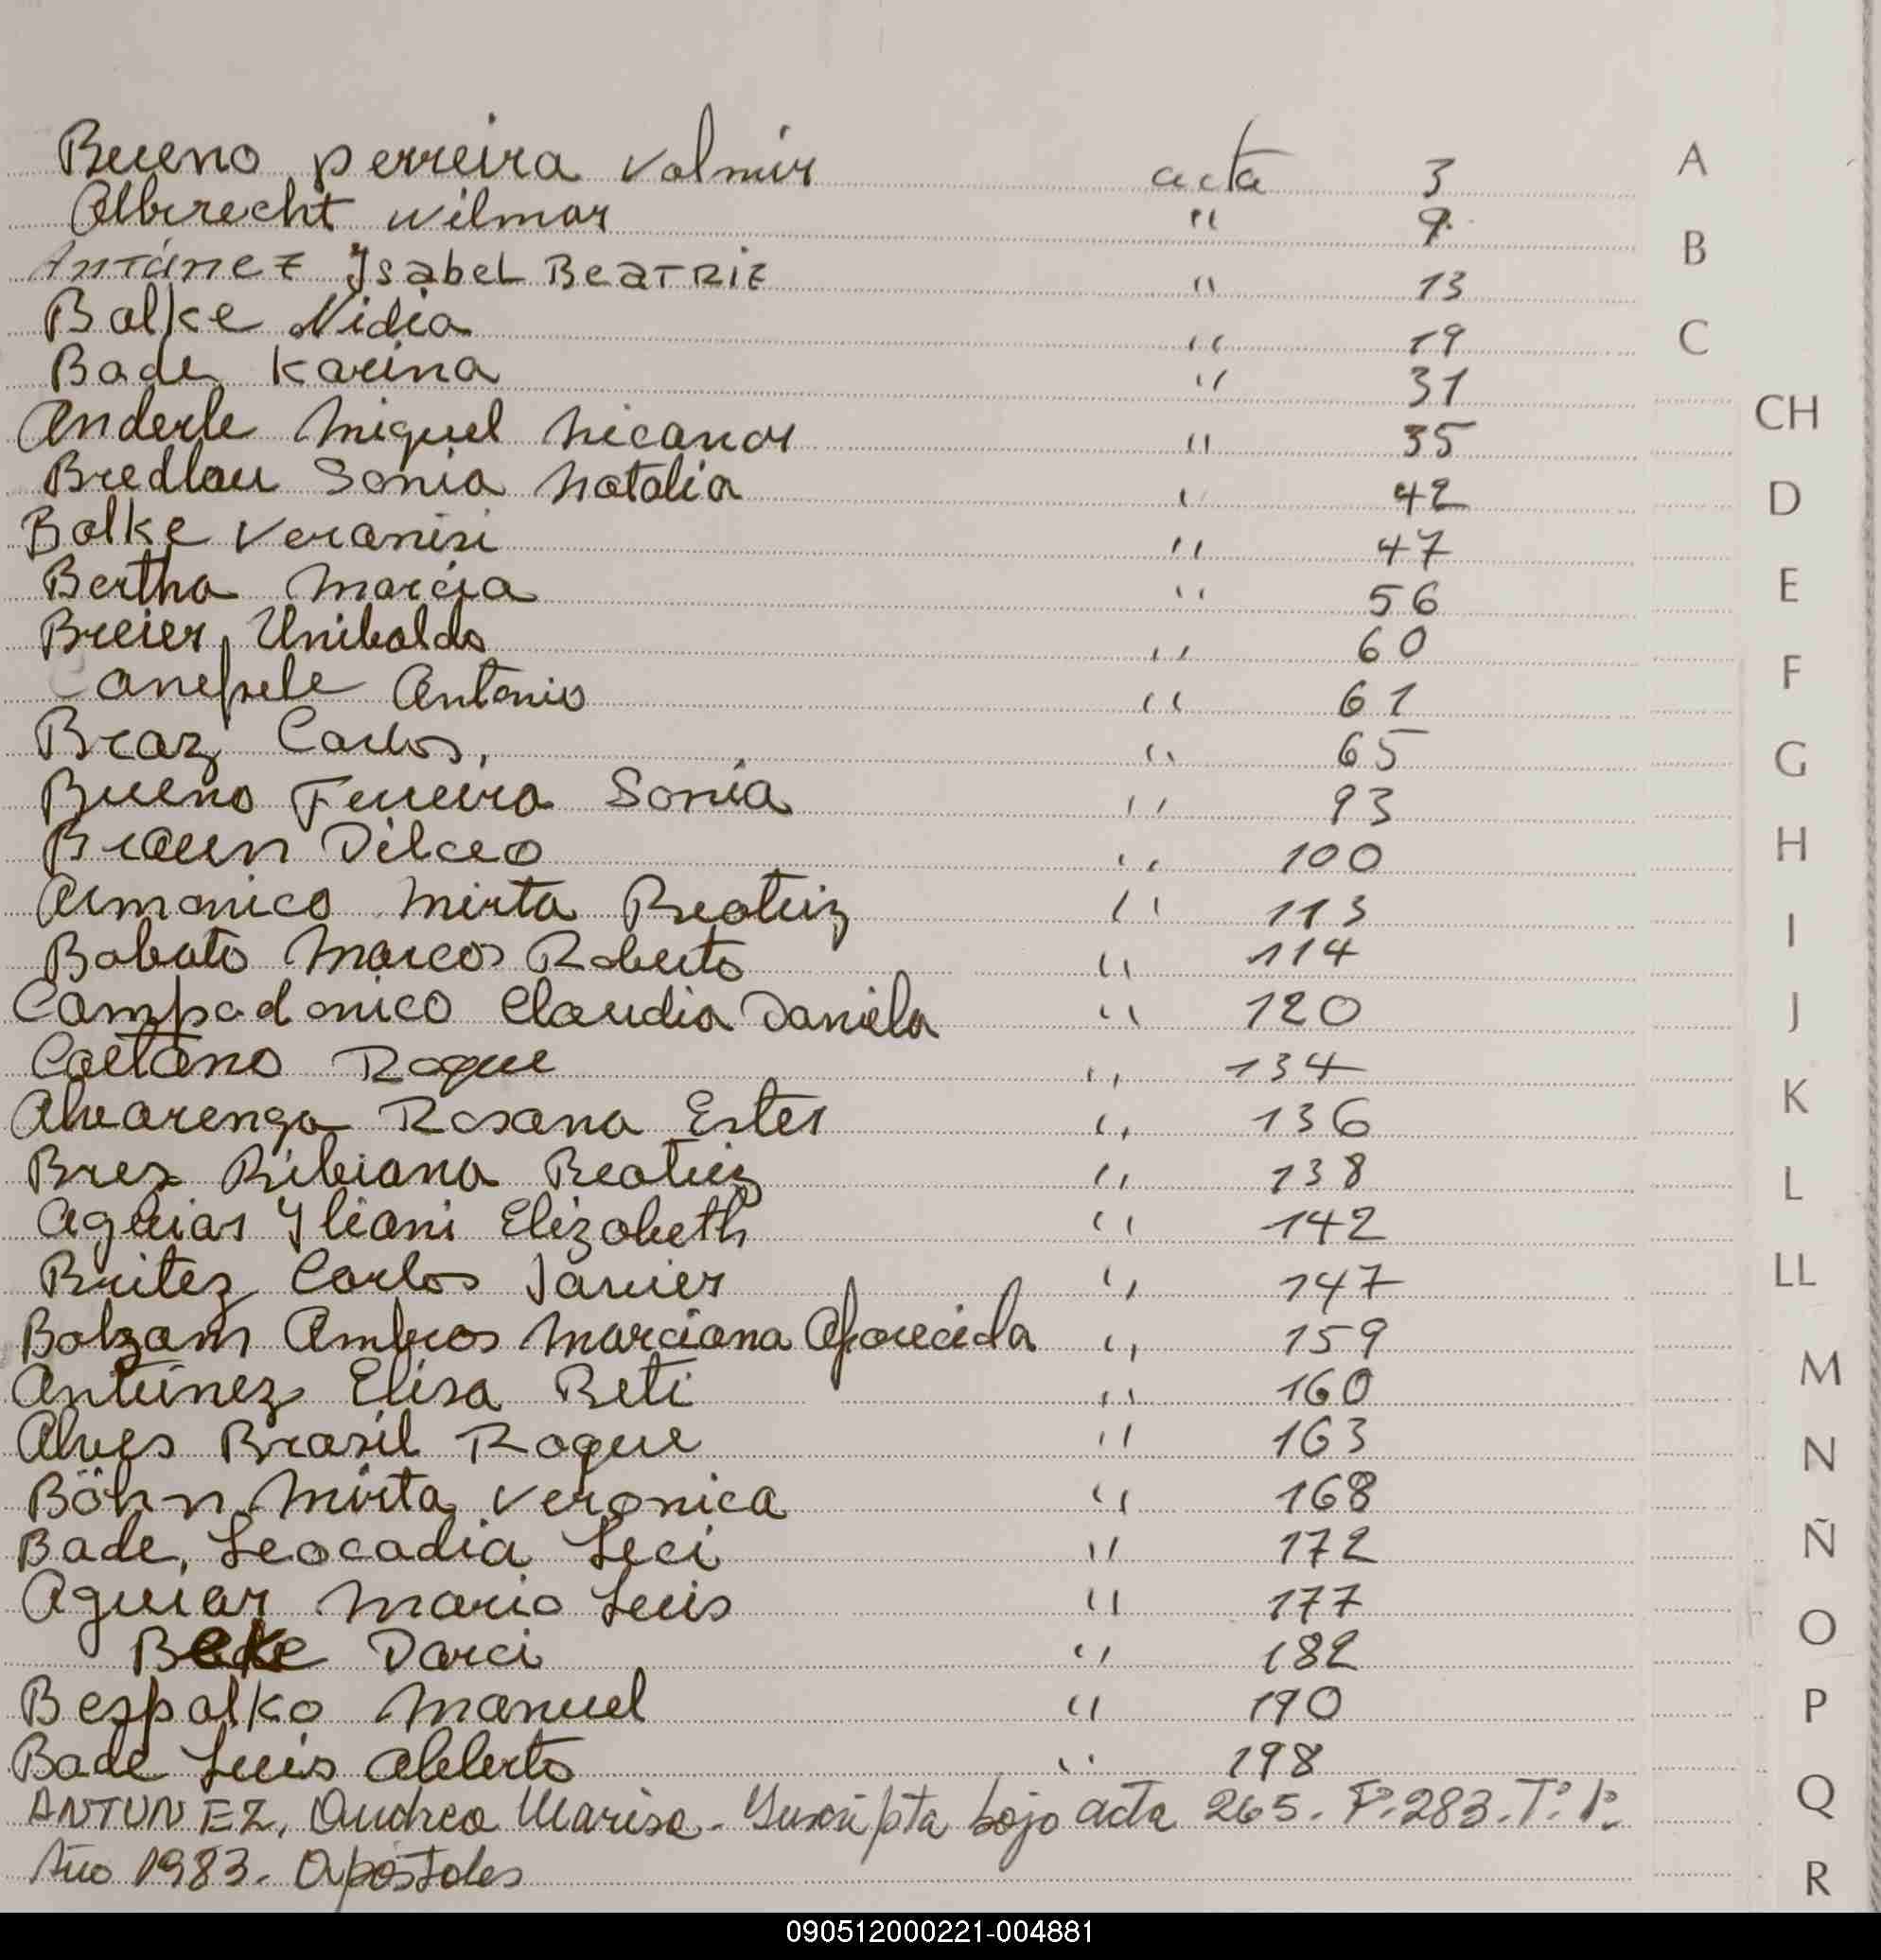 Bueno perreira Valmir acta 3 A
Albrecht Wilmar " 9
Antúnez Ysabel Beatriz " 13 B
Balke Nidia " 19 C
Bade Karina " 31
Anderle Miguel Nicanor " 35 CH
Bredlau Sonia Natalia " 42 D
Balke Veranisi " 47
Bertha Marcia " 56 E
Breier, Unibaldo " 60
Canepele Antonio " 61 F
Braz Carlos, " 65 G
Bueno Ferreira Sonia " 93
Braun Dilceo " 100 H
Armanico Mirta Beatriz " 113 I
Babato Marcos Roberto " 114
Campodonico Claudia Daniela " 120 J
Caetano Roque " 134 K
Alvarenga Rosana Ester " 136
Bres Bibiana Beatriz " 138 L
Aguiar Yliani Elizabeth " 142
Britez Carlos Javier " 147 LL
Balzam Ambros Marciana Aparecida " 159 M
Antúnez Elisa Beti " 160
Alves Brasil Roque " 163 N
Böhn Mirta Veronica " 168
Bade, Leocadia Leci " 172 Ñ
Aguiar Mario Luis " 177 O
Beke Darci " 182
Bespalko Manuel " 190 P
Bade Luis Alberto " 198 Q
ANTUNEZ, Andrea Marisa - Inscripta bajo acta 265. Fº 283. Tº 1º.
Año 1983. Apóstoles R
090512000221-004881